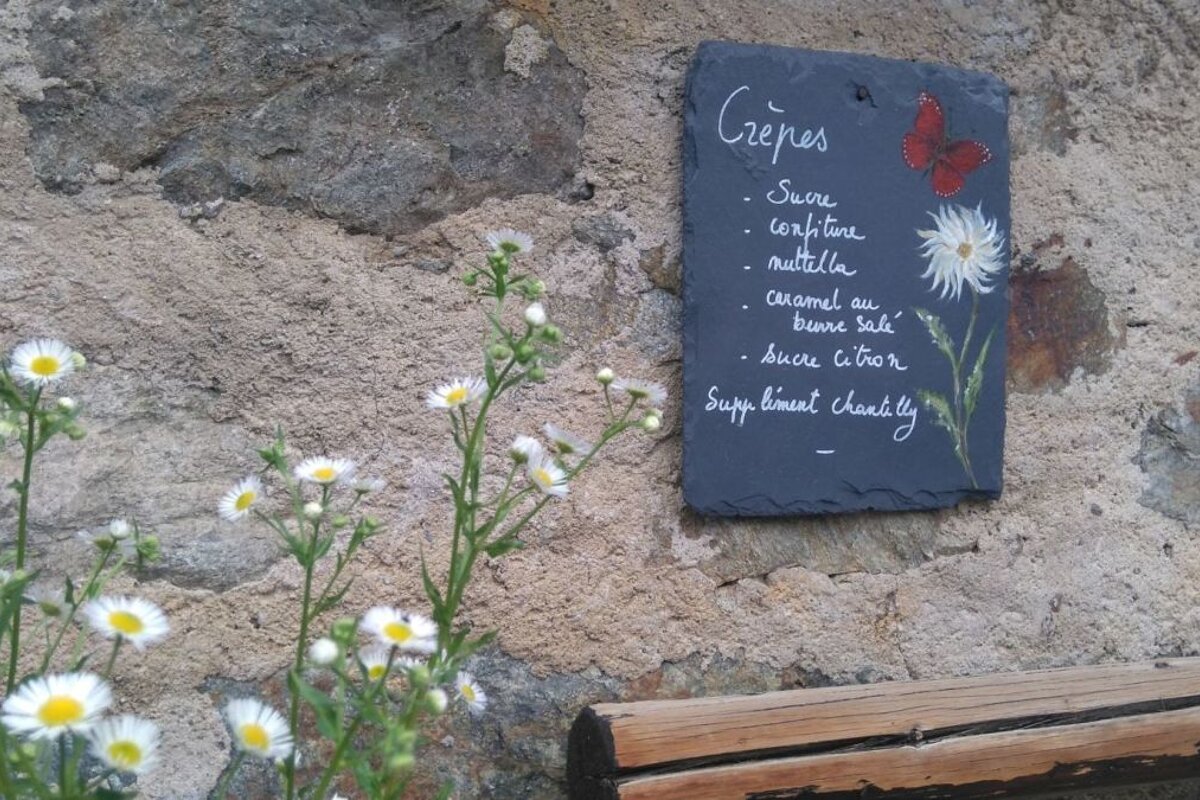 Crèpes
- Sucre
- confiture
- nuttella
- caramel au
beurre salé
- sucre citron
Supplément chantilly
-